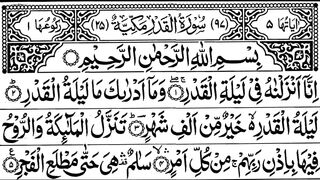 اٰیاتها ۵ (۹۷) سُوْرَةُ الْقَدْرِ مَکِّیَّةٌ (۲۵) رکوعها ۱
بِسْمِ اللّٰهِ الرَّحْمٰنِ الرَّحِیْمِ
اِنَّاۤ اَنْزَلْنٰهُ فِیْ لَیْلَةِ الْقَدْرِ ۚۖ۝۱ وَمَاۤ اَدْرٰىكَ مَا لَیْلَةُ الْقَدْرِ ؕ۝۲
لَیْلَةُ الْقَدْرِ ۙ۬ خَیْرٌ مِّنْ اَلْفِ شَهْرٍ ؕؔ۝۳ تَنَزَّلُ الْمَلٰٓىِٕكَةُ وَالرُّوْحُ
فِیْهَا بِاِذْنِ رَبِّهِمْ ۚ مِنْ كُلِّ اَمْرٍ ۙۛ۝۴ سَلٰمٌ ۛ۫ هِیَ حَتّٰی مَطْلَعِ الْفَجْرِ ۠۝۵